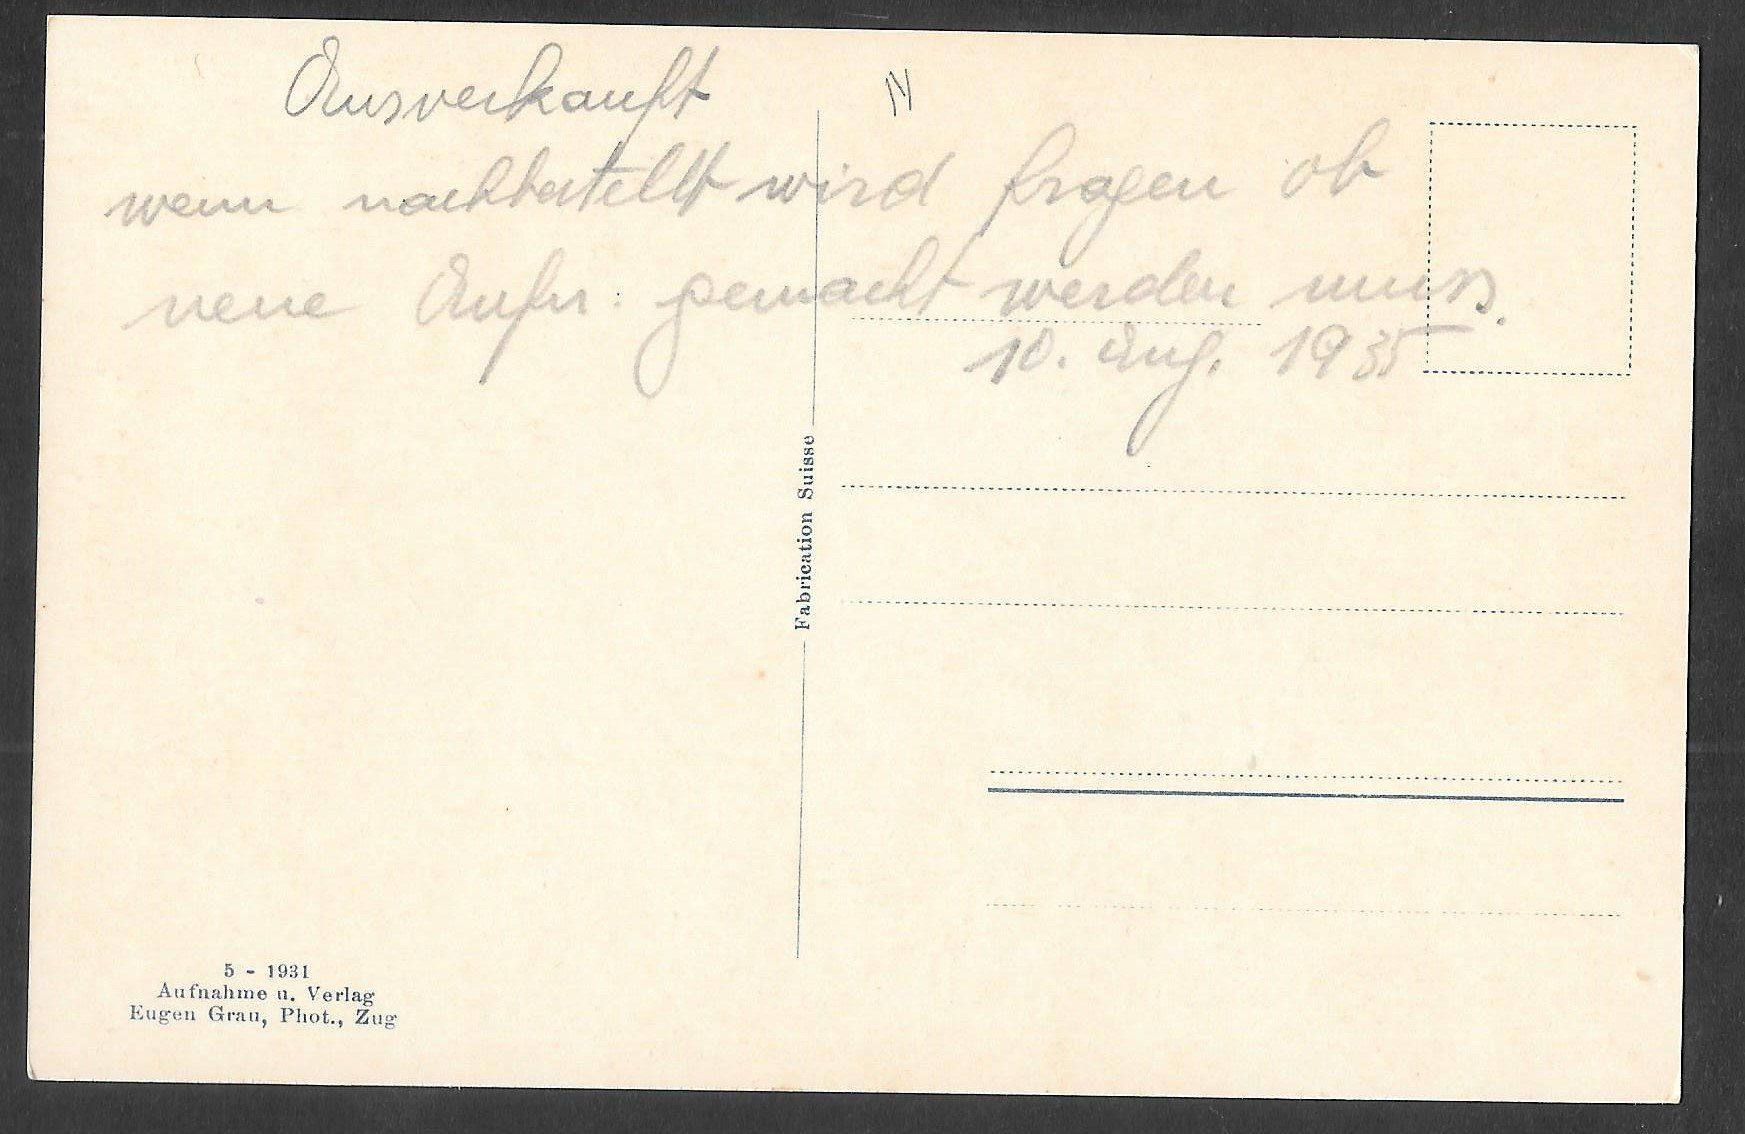 Ausverkauft
wenn nachbestellt wird fragen ob
neue Aufn. gemacht werden muss.
10. Aug. 1935
Fabrication Suisse
5 - 1931
Aufnahme u. Verlag
Eugen Grau, Phot., Zug